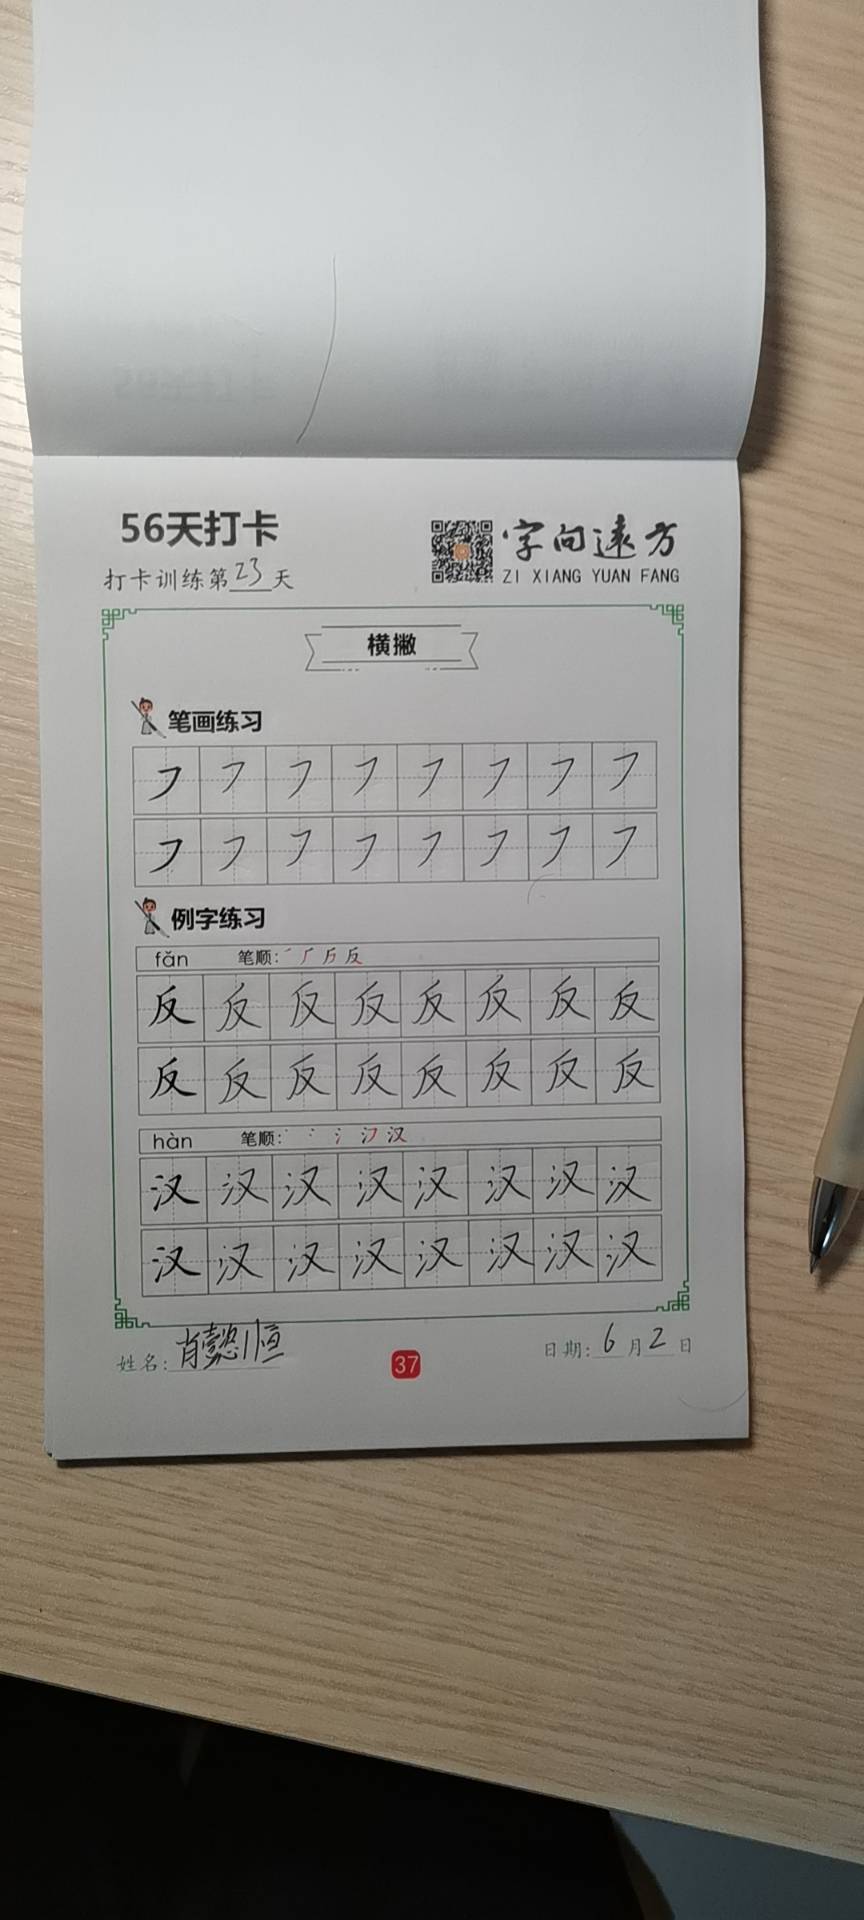 56天打卡
字向遠方
打卡训练第23天
ZI XIANG YUAN FANG
横撇
笔画练习
例字练习
fǎn 笔顺: 反
反 反 反 反 反 反 反 反
反 反 反 反 反 反 反 反
hàn 笔顺: 汉
汉 汉 汉 汉 汉 汉 汉 汉
汉 汉 汉 汉 汉 汉 汉 汉
姓名:肖懿恒
37
日期:6月2日